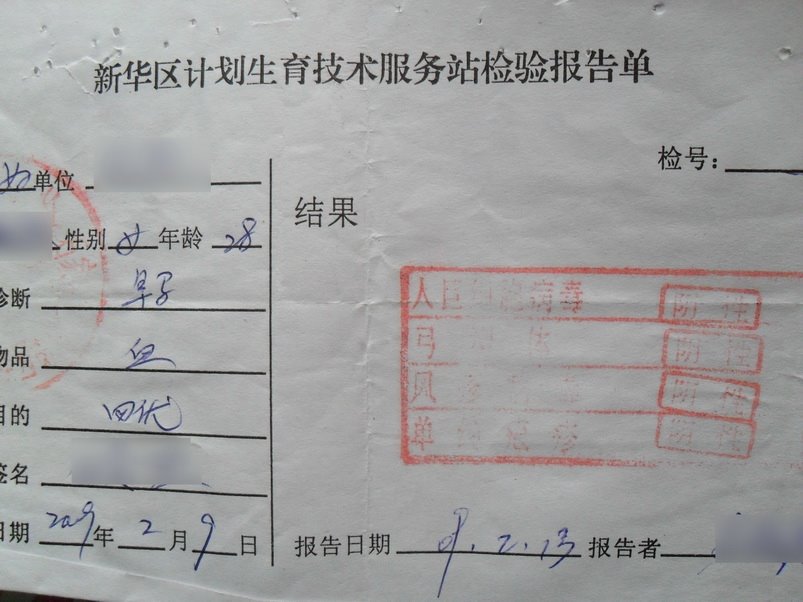 新华区计划生育技术服务站检验报告单
检号：
单位
性别 女 年龄 28
结果
诊断 早孕
物品 血
目的 四优
签名
日期 2009年2月9日
人巨细胞病毒 阴性
弓形体 阴性
风疹病毒 阴性
单纯疱疹 阴性
报告日期 09.2.13 报告者